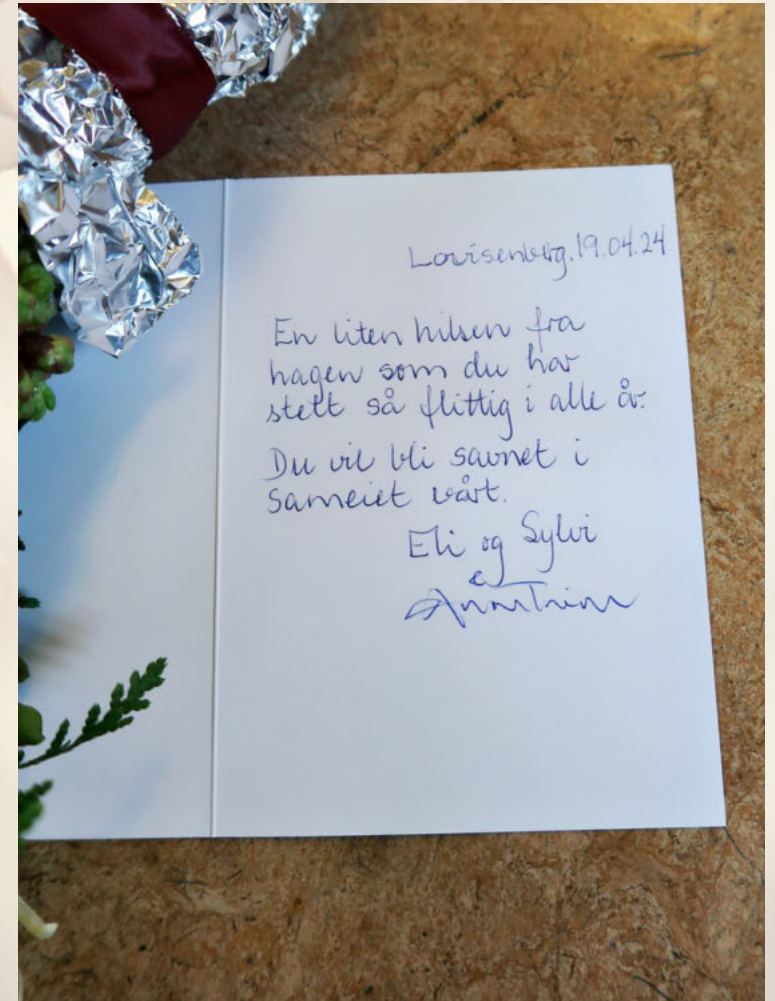 Lovisenberg. 19.04.24
En liten hilsen fra
hagen som du har
stelt så flittig i alle år.
Du vil bli savnet i
Sameiet vårt.
Eli og Sylvi